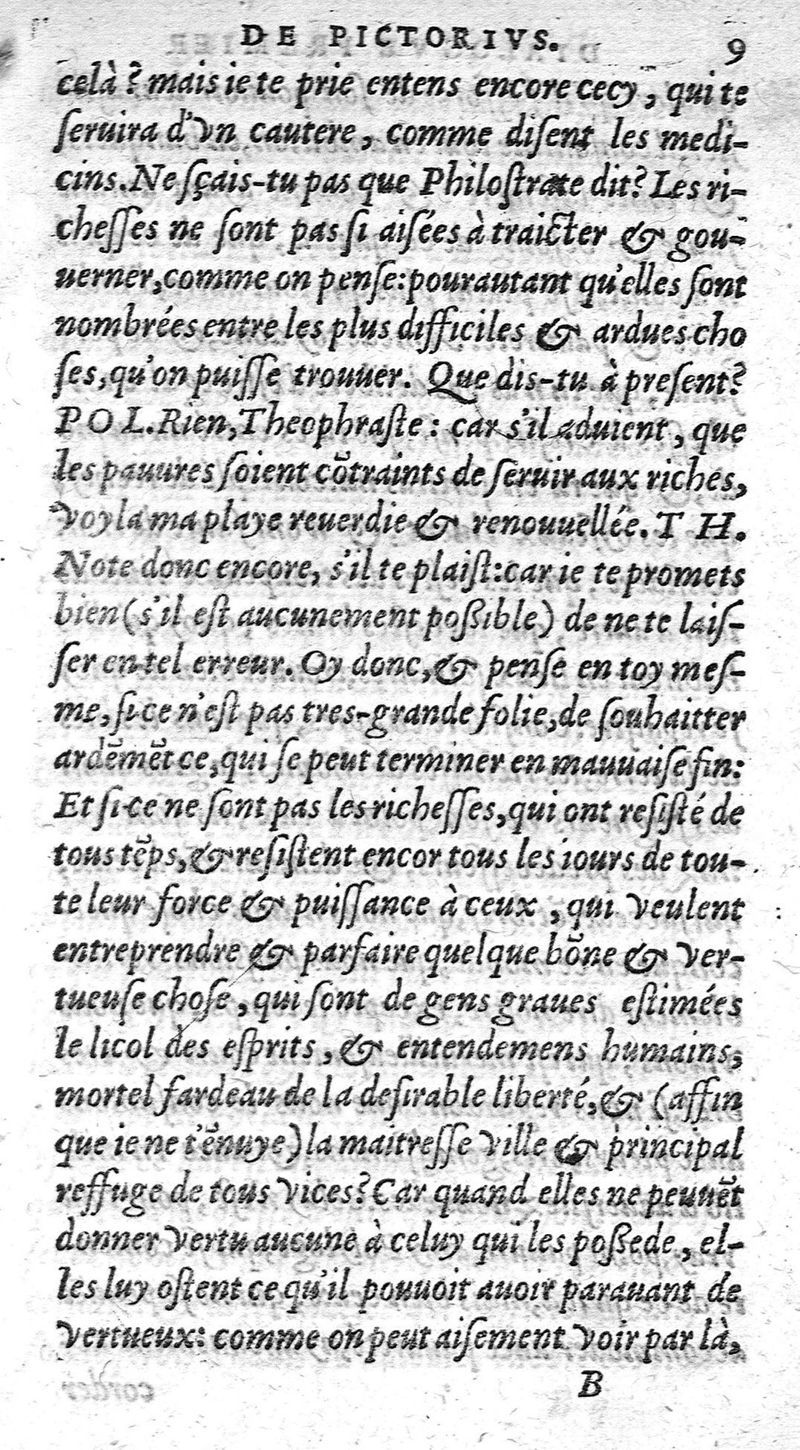 DE PICTORIVS. 9
celà? mais ie te prie entens encore cecy, qui te
ſeruira d'vn cautere, comme diſent les medi-
cins. Ne ſçais-tu pas que Philoſtrate dit? Les ri-
cheſſes ne ſont pas ſi aiſées à traicter & gou-
uerner, comme on penſe: pourautant qu'elles ſont
nombrées entre les plus difficiles & ardues cho
ſes, qu'on puiſſe trouuer. Que dis-tu à preſent?
POL. Rien, Theophraſte: car s'il aduient, que
les pauures ſoient cõtraints de ſeruir aux riches,
voyla ma playe reuerdie & renouuellée. TH.
Note donc encore, s'il te plaiſt: car ie te promets
bien (s'il eſt aucunement poßible) de ne te laiſ-
ſer en tel erreur. Oy donc, & penſe en toy meſ-
me, ſi ce n'eſt pas tres-grande folie, de ſouhaitter
ardẽmẽt ce, qui ſe peut terminer en mauuaiſe fin:
Et ſi ce ne ſont pas les richeſſes, qui ont reſiſté de
tous tẽps, & reſiſtent encor tous les iours de tou-
te leur force & puiſſance à ceux, qui veulent
entreprendre & parfaire quelque bõne & ver-
tueuſe choſe, qui ſont de gens graues eſtimées
le licol des eſprits, & entendemens humains,
mortel fardeau de la deſirable liberté, & (affin
que ie ne t'ẽnuye) la maitreſſe ville & principal
reffuge de tous vices? Car quand elles ne peuuẽt
donner vertu aucune à celuy qui les poßede, el-
les luy oſtent ce qu'il pouuoit auoir parauant de
vertueux: comme on peut aiſement voir par là,
B